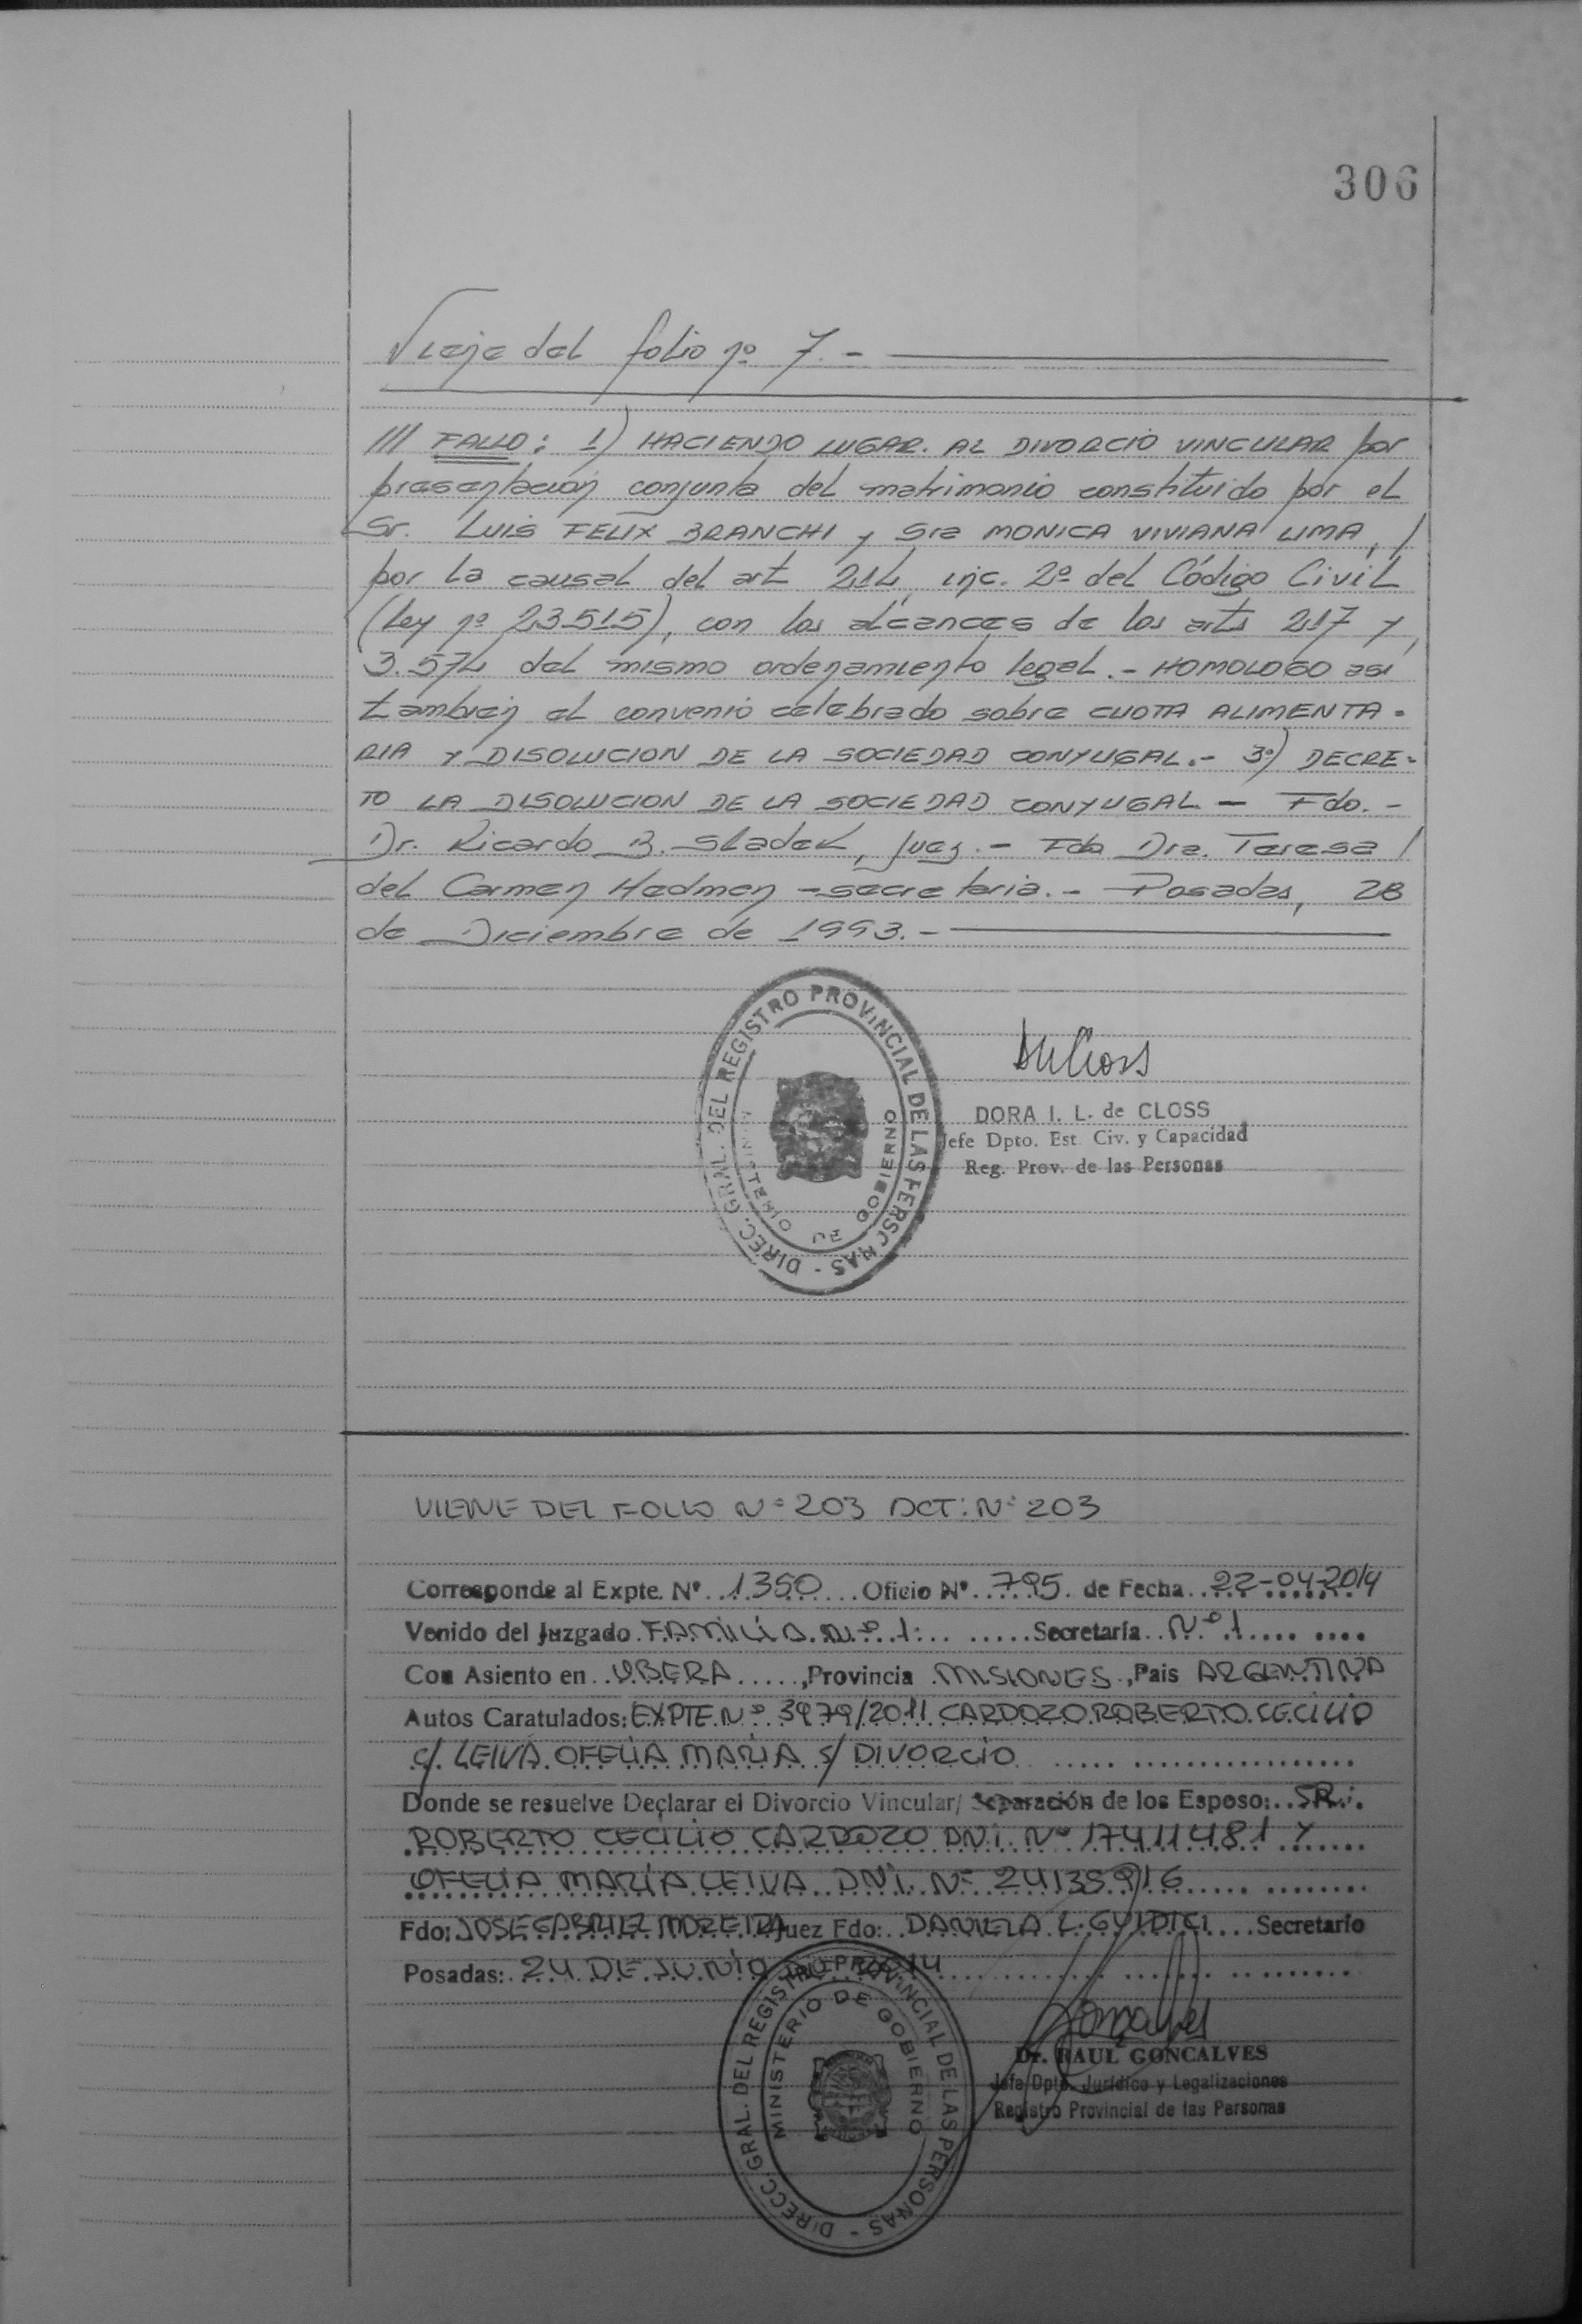 306
Viene del folio nº 7.-
/// FALLO: 1) HACIENDO LUGAR. AL DIVORCIO VINCULAR por
presentación conjunta del matrimonio constituido por el
Sr. LUIS FELIX BRANCHI y Sra MONICA VIVIANA LIMA, /
por la causal del art 214, inc. 2º del Código Civil
(Ley nº 23.515), con los alcances de los arts 217 y
3.574 del mismo ordenamiento legal.- HOMOLOGO asi
tambien el convenio celebrado sobre CUOTA ALIMENTA-
RIA Y DISOLUCION DE LA SOCIEDAD CONYUGAL.- 3º) DECRE-
TO LA DISOLUCION DE LA SOCIEDAD CONYUGAL - Fdo.-
Dr. Ricardo B. Sladek, Juez.- Fdo Dra. Teresa /
del Carmen Hedmen - secretaria.- Posadas, 28
de Diciembre de 1993.-
DIREC. GRAL. DEL REGISTRO PROVINCIAL DE LAS PERSONAS -
MINISTERIO DE GOBIERNO
DORA I. L. de CLOSS
Jefe Dpto. Est. Civ. y Capacidad
Reg. Prov. de las Personas
VIENE DEL FOLIO Nº 203 ACT: Nº 203
Corresponde al Expte. Nº 1350 Oficio Nº 795 de Fecha 22-04-2014
Venido del Juzgado FAMILIA Nº 1 Secretaría Nº 1
Con Asiento en OBERA, Provincia MISIONES, Pais ARGENTINA
Autos Caratulados: EXPTE Nº 3979/2011 CARDOZO ROBERTO CECILIO
c/ LEIVA OFELIA MARIA s/ DIVORCIO
Donde se resuelve Declarar el Divorcio Vincular/ Separación de los Esposo: SR:
ROBERTO CECILIO CARDOZO DNI. Nº 17411481 Y
OFELIA MARÍA LEIVA DNI. Nº
Fdo: JOSE GABRIEL MOREIRA Juez Fdo: DANIELA L. GUIDICI Secretario
Posadas: 24 DE JUNIO DE 2014
DIRECC. GRAL. DEL REGISTRO PROVINCIAL DE LAS PERSONAS -
MINISTERIO DE GOBIERNO
Gonçalves
Dr. RAUL GONCALVES
Jefe Dpto. Jurídico y Legalizaciones
Registro Provincial de las Personas